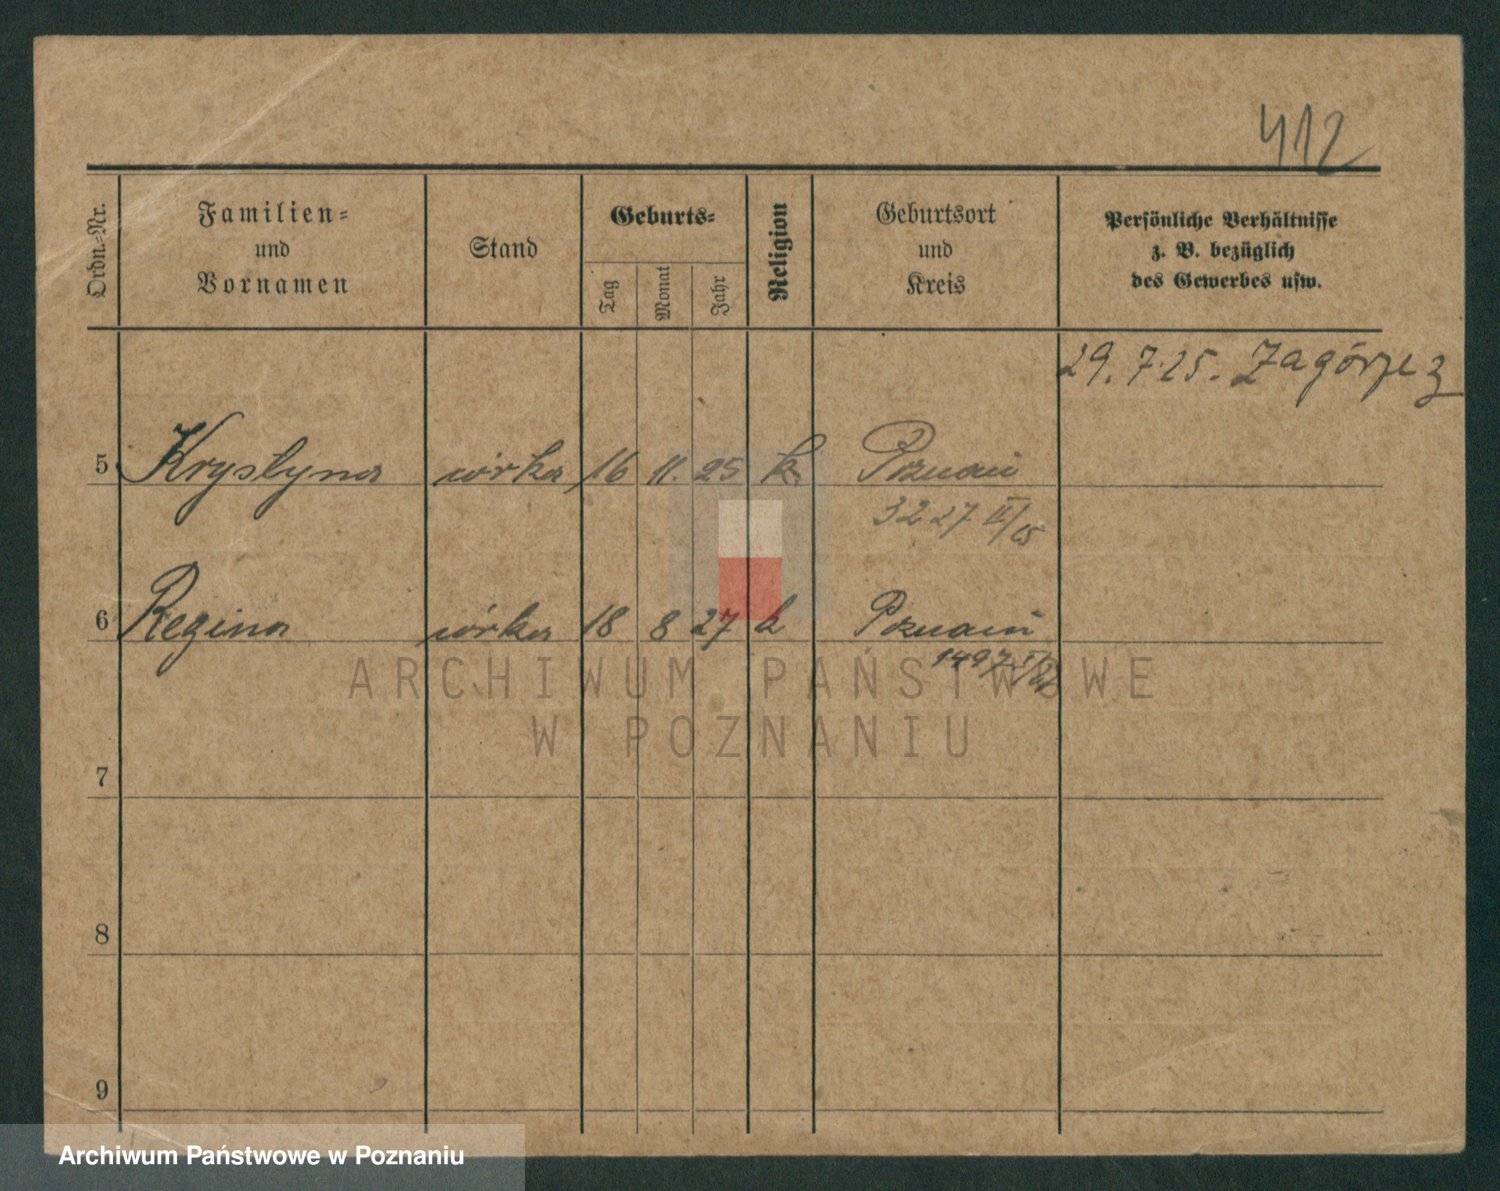 412
Ordn.-Nr.
Familien-
und
Vornamen
Stand
Geburts-
Tag
Monat
Jahr
Religion
Geburtsort
und
Kreis
Persönliche Verhältnisse
z. B. bezüglich
des Gewerbes usw.
29. 7. 25. Zagórze 3
5 Krystyna córka 16 11. 25 k. Poznań
3227 II/25
6 Regina córka 18 8 27 k Poznań
1497
ARCHIWUM PAŃSTWOWE
W POZNANIU
7
8
9
Archiwum Państwowe w Poznaniu